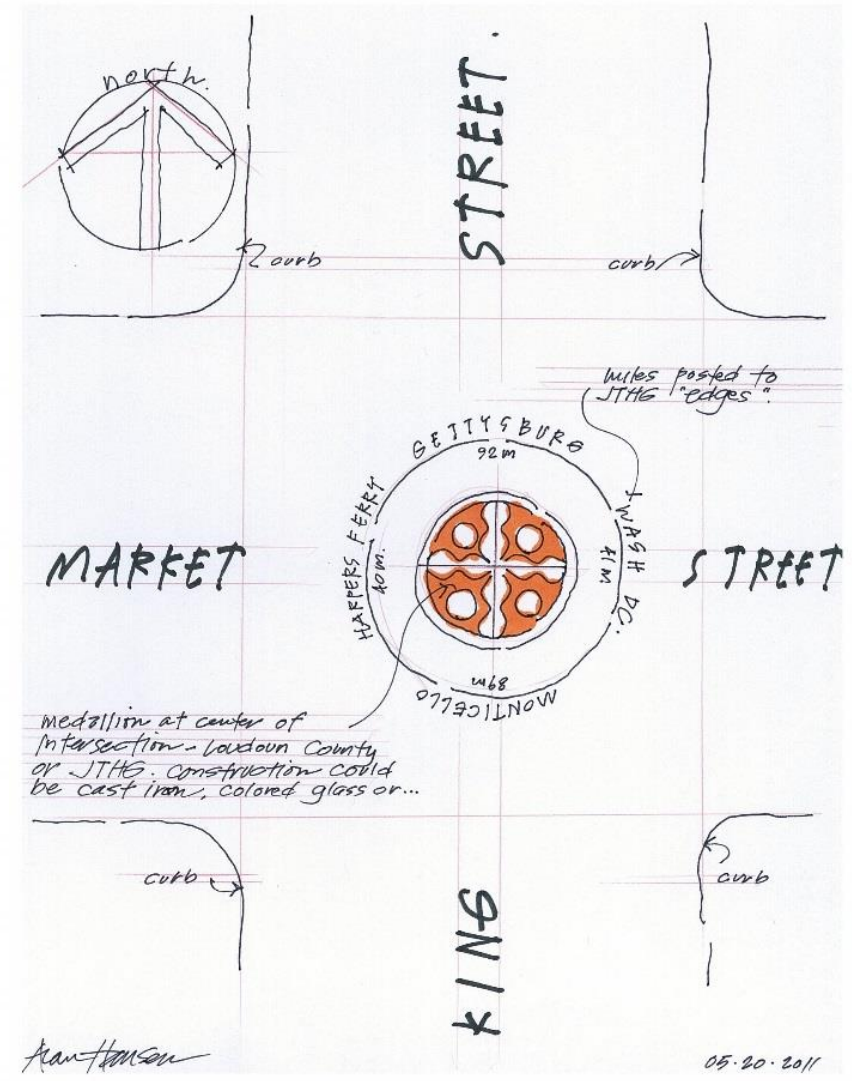 north.
STREET.
curb
curb
miles posted to
JTHG "edges".
GETTYSBURG
92m
HARPERS FERRY
40m.
WASH DC.
41m
MARKET
STREET
89m
MONTICELLO
medallion at center of
Intersection - Loudoun County
or JTHG. Construction could
be cast iron, colored glass or...
curb
curb
KING
Alan Hansen
05.20.2011